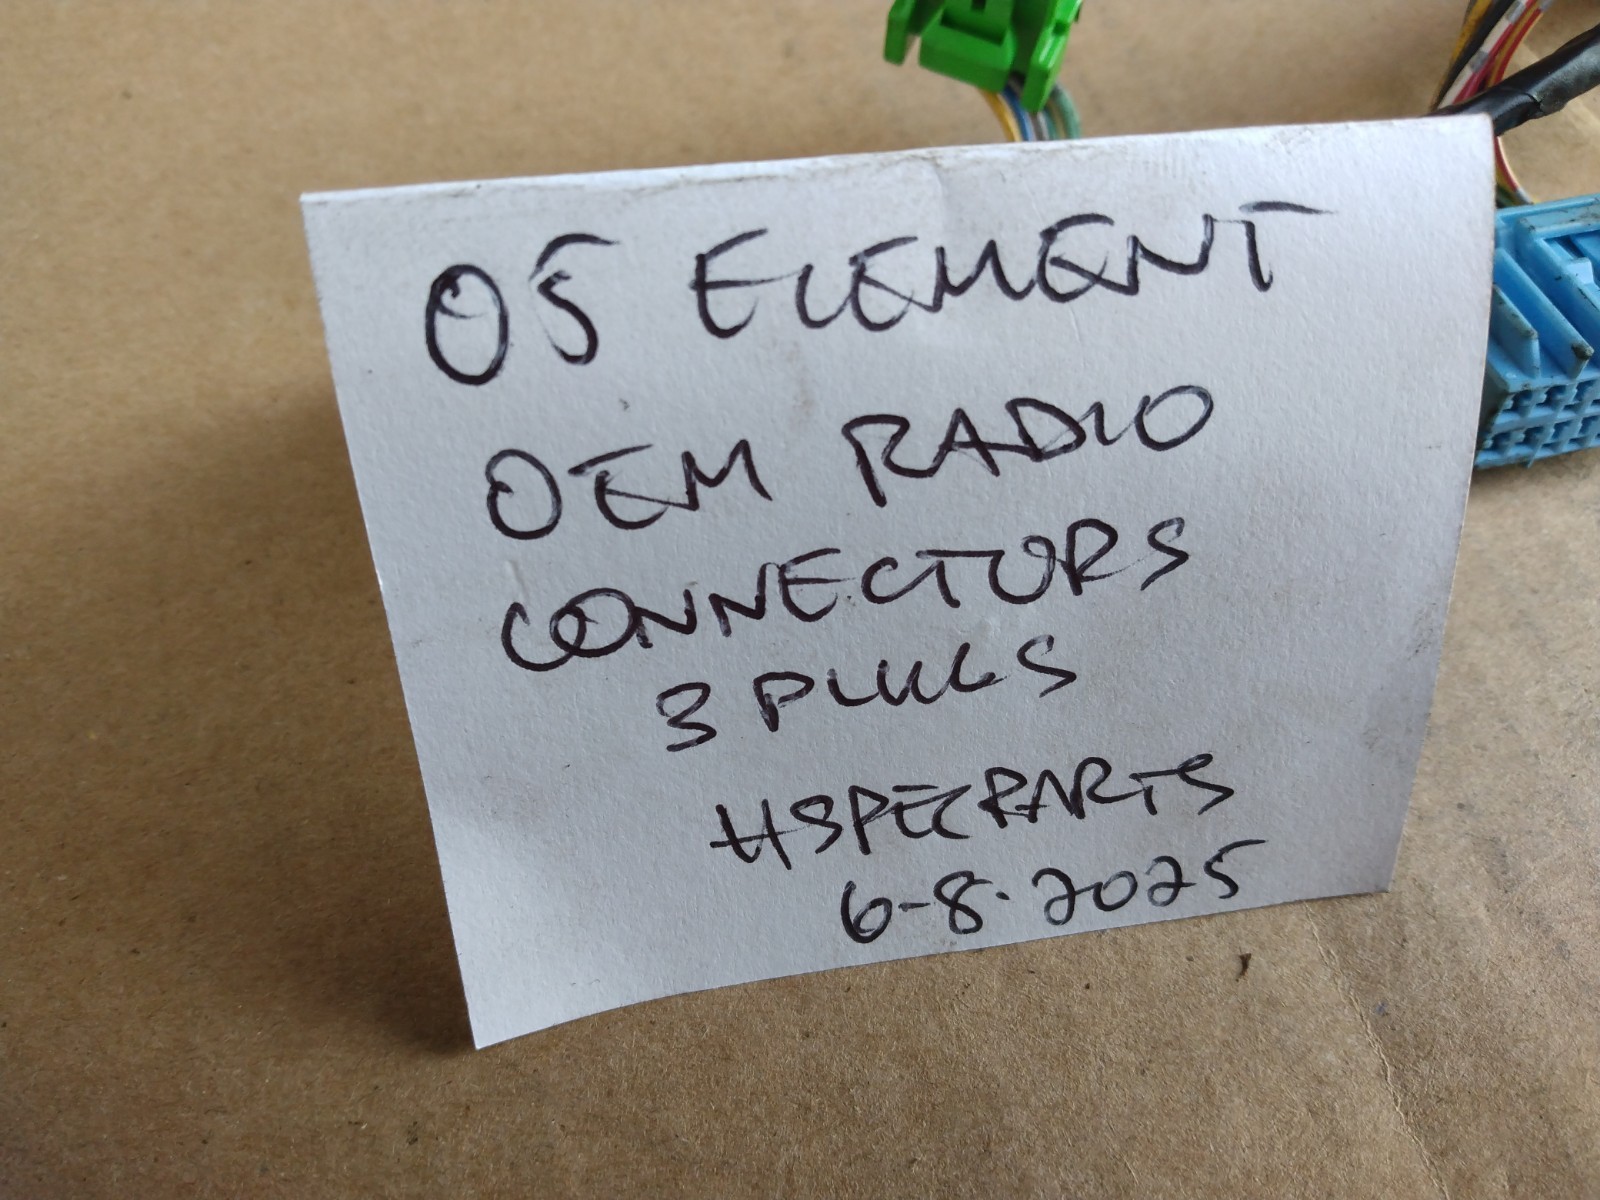 05 ELEMENT
OEM RADIO
CONNECTORS
3 PLUGS
HSPECPARTS
6-8-2025